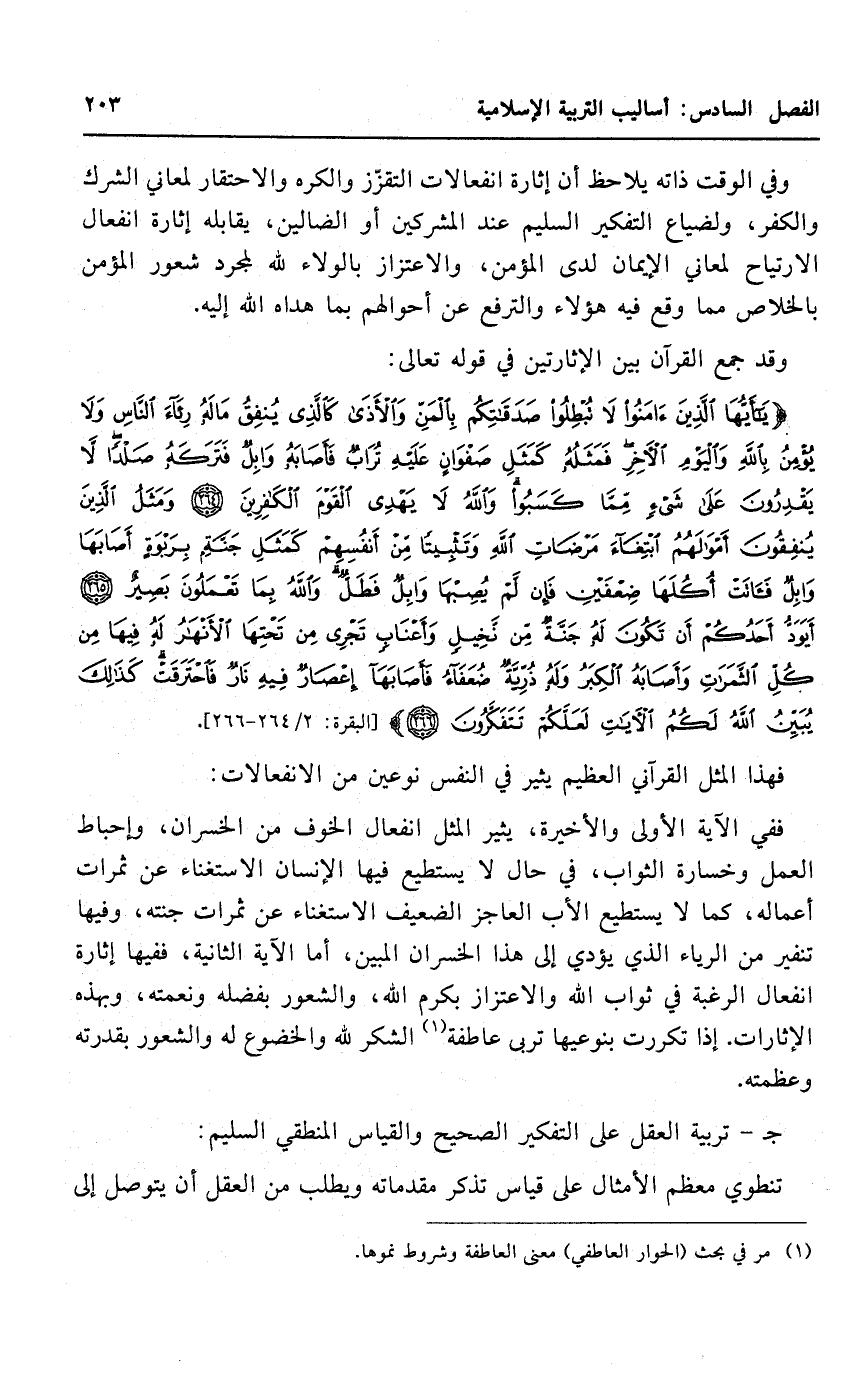 الفصل السادس: أساليب التربية الإسلامية ٢٠٣
وفي الوقت ذاته يلاحظ أن إثارة انفعالات التقزّز والكره والاحتقار لمعاني الشرك
والكفر، ولضياع التفكير السليم عند المشركين أو الضالين، يقابله إثارة انفعال
الارتياح لمعاني الإيمان لدى المؤمن، والاعتزاز بالولاء لله لمجرد شعور المؤمن
بالخلاص مما وقع فيه هؤلاء والترفع عن أحوالهم بما هداه الله إليه.
وقد جمع القرآن بين الإثارتين في قوله تعالى:
﴿يَٰٓأَيُّهَا ٱلَّذِينَ ءَامَنُوا۟ لَا تُبْطِلُوا۟ صَدَقَٰتِكُم بِٱلْمَنِّ وَٱلْأَذَىٰ كَٱلَّذِى يُنفِقُ مَالَهُۥ رِئَآءَ ٱلنَّاسِ وَلَا
يُؤْمِنُ بِٱللَّهِ وَٱلْيَوْمِ ٱلْءَاخِرِ ۖ فَمَثَلُهُۥ كَمَثَلِ صَفْوَانٍ عَلَيْهِ تُرَابٌ فَأَصَابَهُۥ وَابِلٌ فَتَرَكَهُۥ صَلْدًا ۖ لَّا
يَقْدِرُونَ عَلَىٰ شَىْءٍ مِّمَّا كَسَبُوا۟ ۗ وَٱللَّهُ لَا يَهْدِى ٱلْقَوْمَ ٱلْكَٰفِرِينَ ﴿٢٦٤﴾ وَمَثَلُ ٱلَّذِينَ
يُنفِقُونَ أَمْوَٰلَهُمُ ٱبْتِغَآءَ مَرْضَاتِ ٱللَّهِ وَتَثْبِيتًا مِّنْ أَنفُسِهِمْ كَمَثَلِ جَنَّةٍۭ بِرَبْوَةٍ أَصَابَهَا
وَابِلٌ فَـَٔاتَتْ أُكُلَهَا ضِعْفَيْنِ فَإِن لَّمْ يُصِبْهَا وَابِلٌ فَطَلٌّ ۗ وَٱللَّهُ بِمَا تَعْمَلُونَ بَصِيرٌ ﴿٢٦٥﴾
أَيَوَدُّ أَحَدُكُمْ أَن تَكُونَ لَهُۥ جَنَّةٌ مِّن نَّخِيلٍ وَأَعْنَابٍ تَجْرِى مِن تَحْتِهَا ٱلْأَنْهَٰرُ لَهُۥ فِيهَا مِن
كُلِّ ٱلثَّمَرَٰتِ وَأَصَابَهُ ٱلْكِبَرُ وَلَهُۥ ذُرِّيَّةٌ ضُعَفَآءُ فَأَصَابَهَآ إِعْصَارٌ فِيهِ نَارٌ فَٱحْتَرَقَتْ ۗ كَذَٰلِكَ
يُبَيِّنُ ٱللَّهُ لَكُمُ ٱلْءَايَٰتِ لَعَلَّكُمْ تَتَفَكَّرُونَ ﴿٢٦٦﴾﴾ [البقرة: ٢/ ٢٦٤-٢٦٦].
فهذا المثل القرآني العظيم يثير في النفس نوعين من الانفعالات:
ففي الآية الأولى والأخيرة، يثير المثل انفعال الخوف من الخسران، وإحباط
العمل وخسارة الثواب، في حال لا يستطيع فيها الإنسان الاستغناء عن ثمرات
أعماله، كما لا يستطيع الأب العاجز الضعيف الاستغناء عن ثمرات جنته، وفيها
تنفير من الرياء الذي يؤدي إلى هذا الخسران المبين، أما الآية الثانية، ففيها إثارة
انفعال الرغبة في ثواب الله والاعتزاز بكرم الله، والشعور بفضله ونعمته، وبهذه
الإثارات. إذا تكررت بنوعيها تربى عاطفة(١) الشكر لله والخضوع له والشعور بقدرته
وعظمته.
جـ - تربية العقل على التفكير الصحيح والقياس المنطقي السليم:
تنطوي معظم الأمثال على قياس تذكر مقدماته ويطلب من العقل أن يتوصل إلى
(١) مر في بحث (الحوار العاطفي) معنى العاطفة وشروط نموها.